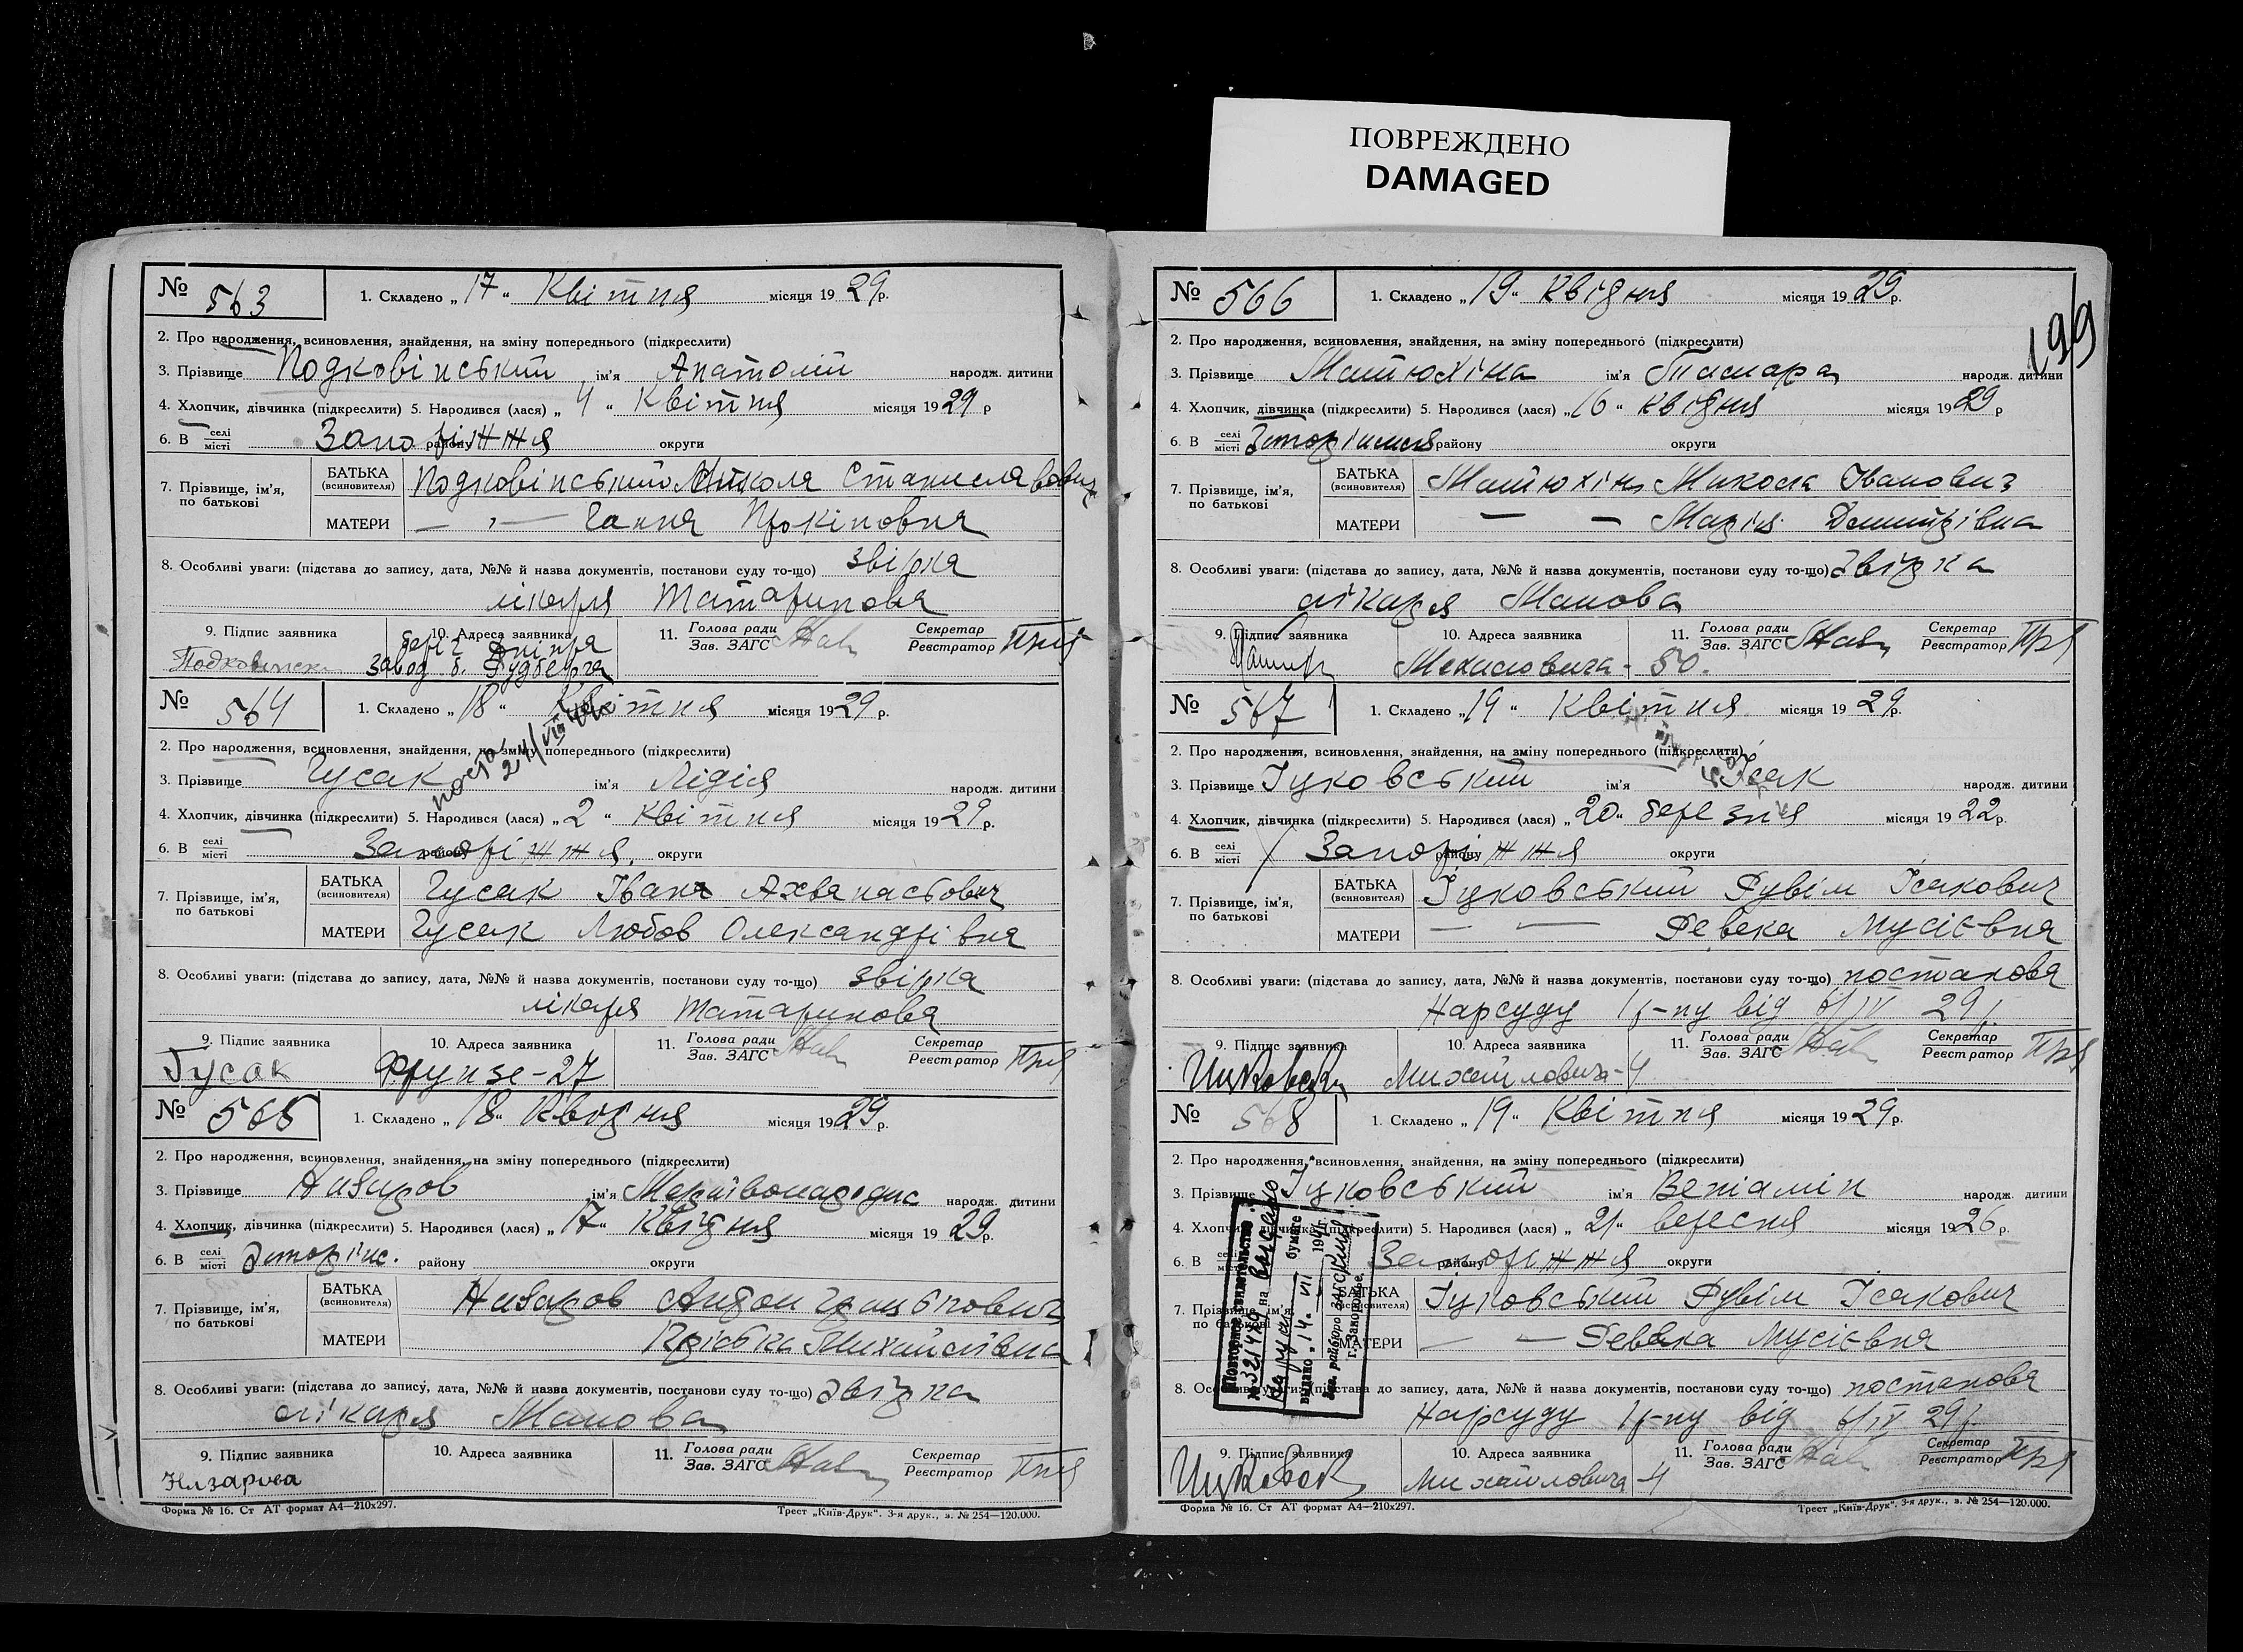 ПОВРЕЖДЕНО
DAMAGED
№ 563 1. Складено „17“ Квітня місяця 1929 р.
2. Про народження, всиновлення, знайдення, на зміну попереднього (підкреслити)
3. Прізвище Подковінський ім'я Анатолій народж. дитини
4. Хлопчик, дівчинка (підкреслити) 5. Народився (лася) „4“ Квітня місяця 1929 р
6. В селі місті Запоріжжя району округи
7. Прізвище, ім'я, по батькові
БАТЬКА (всиновителя) Подковінський Микола Станиславович
МАТЕРИ — „ — Ганна Прокіповна
8. Особливі уваги: (підстава до запису, дата, №№ й назва документів, постанови суду то-що) звірка
лікаря Татаринова
9. Підпис заявника 10. Адреса заявника 11. Голова ради Зав. ЗАГС Секретар Реєстратор
беріг Дніпра
завод б.
№ 564 1. Складено „18“ Квітня місяця 1929 р.
2. Про народження, всиновлення, знайдення, на зміну попереднього (підкреслити)
3. Прізвище Гусак ім'я Лідія народж. дитини
4. Хлопчик, дівчинка (підкреслити) 5. Народився (лася) „2“ Квітня місяця 1929 р.
6. В селі місті Запоріжжя району округи
7. Прізвище, ім'я, по батькові
БАТЬКА (всиновителя) Гусак Іван Ахванасьович
МАТЕРИ Гусак Любов Олександрівна
8. Особливі уваги: (підстава до запису, дата, №№ й назва документів, постанови суду то-що) звірка
лікаря Татаринова
9. Підпис заявника 10. Адреса заявника 11. Голова ради Зав. ЗАГС Секретар Реєстратор
Гусак Фрунзе-27
№ 565 1. Складено „18“ Квітня місяця 1929 р.
2. Про народження, всиновлення, знайдення, на зміну попереднього (підкреслити)
3. Прізвище Назаров ім'я народж. дитини
4. Хлопчик, дівчинка (підкреслити) 5. Народився (лася) „17“ Квітня місяця 1929 р.
6. В селі місті Запоріж. району округи
7. Прізвище, ім'я, по батькові
БАТЬКА (всиновителя) Назаров Антон
МАТЕРИ Михайлівна
8. Особливі уваги: (підстава до запису, дата, №№ й назва документів, постанови суду то-що) звірка
лікаря Манова
9. Підпис заявника 10. Адреса заявника 11. Голова ради Зав. ЗАГС Секретар Реєстратор
Назарова
Форма № 16. Ст АТ формат А4—210х297. Трест „Київ-Друк“. 3-я друк., з. № 254—120.000.
199
№ 566 1. Складено „19“ Квітня місяця 1929 р.
2. Про народження, всиновлення, знайдення, на зміну попереднього (підкреслити)
3. Прізвище Матюхіна ім'я Тамара народж. дитини
4. Хлопчик, дівчинка (підкреслити) 5. Народився (лася) „16“ Квітня місяця 1929 р
6. В селі місті Запоріжжя району округи
7. Прізвище, ім'я, по батькові
БАТЬКА (всиновителя) Матюхін Микола Іванович
МАТЕРИ — — Марія Дмитрівна
8. Особливі уваги: (підстава до запису, дата, №№ й назва документів, постанови суду то-що) звірка
лікаря Манова
9. Підпис заявника 10. Адреса заявника 11. Голова ради Зав. ЗАГС Секретар Реєстратор
50.
№ 567 1. Складено „19“ Квітня місяця 1929 р.
2. Про народження, всиновлення, знайдення, на зміну попереднього (підкреслити)
3. Прізвище Іцковський ім'я Ісак народж. дитини
4. Хлопчик, дівчинка (підкреслити) 5. Народився (лася) „20“ березня місяця 1922 р.
6. В селі місті Запоріжжя району округи
7. Прізвище, ім'я, по батькові
БАТЬКА (всиновителя) Іцковський Рувім Ісакович
МАТЕРИ — — Ревека Мусієвна
8. Особливі уваги: (підстава до запису, дата, №№ й назва документів, постанови суду то-що) постанова
Нарсуду 1 р-ну від 6/IV 29 р.
9. Підпис заявника 10. Адреса заявника 11. Голова ради Зав. ЗАГС Секретар Реєстратор
Михайловича-4
№ 568 1. Складено „19“ Квітня місяця 1929 р.
2. Про народження, всиновлення, знайдення, на зміну попереднього (підкреслити)
3. Прізвище Іцковський ім'я Веніамін народж. дитини
4. Хлопчик, дівчинка (підкреслити) 5. Народився (лася) „21“ вересня місяця 1926 р.
6. В селі місті Запоріжжя району округи
7. Прізвище, ім'я, по батькові
БАТЬКА (всиновителя) Іцковський Рувім Ісакович
МАТЕРИ — — Ревека Мусієвна
8. Особливі уваги: (підстава до запису, дата, №№ й назва документів, постанови суду то-що) постанова
Нарсуду 1 р-ну від 6/IV 29 р.
Повторное свидетельство
№ 321470 на
бумаге
выдано „14“ VII 194
Зав. райбюро ЗАГС
г. Запорожье.
9. Підпис заявника 10. Адреса заявника 11. Голова ради Зав. ЗАГС Секретар Реєстратор
Михайловича-4
Форма № 16. Ст АТ формат А4—210х297. Трест „Київ-Друк“. 3-я друк., з. № 254—120.000.